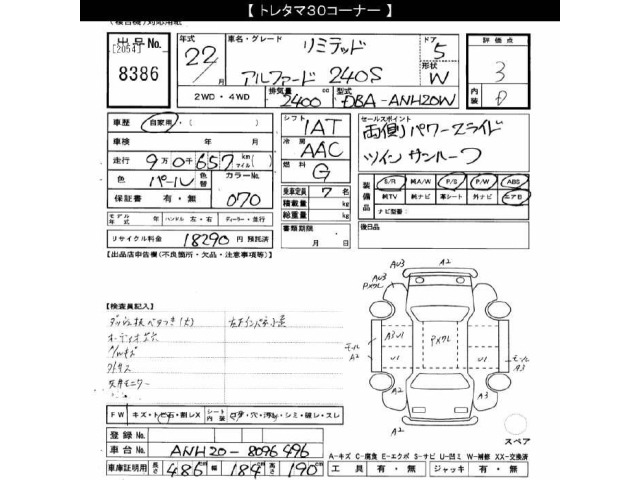 【 トレタマ30コーナー 】
出品No.
[2054]
8386
年式
22
月
車名・グレード
リミテッド
アルファード 240S
ドア
5
形状
W
評価点
3
内装
D
2WD・4WD
排気量
2400
cc
型式
DBA-ANH20W
車歴
自家用・(
)
車検
年 月
走行
9万0千657
km
マイル
( )
色
パール
色替
カラーNo.
070
保証書
有・無
シフト
IAT
冷房
AAC
燃料
G
乗車定員
7 名
積載量
kg
総重量
kg
書類期限
月 日
セールスポイント
両側パワースライド
ツインサンルーフ
装備品
S/R 純A/W P/S P/W ABS
純TV 純ナビ 革シート 外ナビ エアB
ナビ型番:
モデル年式
年
ハンドル 左・右
ディーラー・並行
リサイクル料金
18290
円 預託済
後日品
【出品店申告欄(不良箇所・欠品・注意事項等)】
【検査員記入】
ダッシュ板ベタつき(大)
左下インパネ小キズ
FW
キズ・トビ石・割レX
シート内装
コゲ・穴・汚れ・シミ・破レ・スレ
登録No.
車台No.
ANH20-8096496
車庫証明用
長
486
cm
幅
184
cm
高さ
190
cm
AU3
A2
AU3
PXワレ
モール
A2
A3 U1
U1
PXワレ
U1
モール
A3
A2
A2
スペア
A-キズ C-腐食 E-エクボ S-サビ U-凹ミ W-補修 XX-交換済
工具 有・無
ジャッキ 有・無